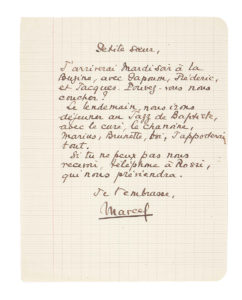 Petite sœur,
J'arriverai Mardi soir à la
Buzine, avec Papoum, Frédéric,
et Jacques. Pouvez-vous nous
coucher?
Le lendemain, nous irons
déjeuner au Jazz de Baptiste,
avec le curé, le chanoine,
Marius, Brunette, J'apporterai
tout.
Si tu ne peux pas nous
recevoir, téléphone à Rossi,
qui nous préviendra.
Je t'embrasse,
Marcel